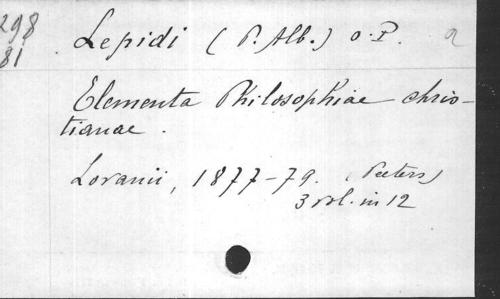 298
81
Lepidi (P. Alb.) O. P. a
Elementa Philosophiae chris-
tianae.
Lovanii, 1877-79. (Peeters)
3 vol. in 12